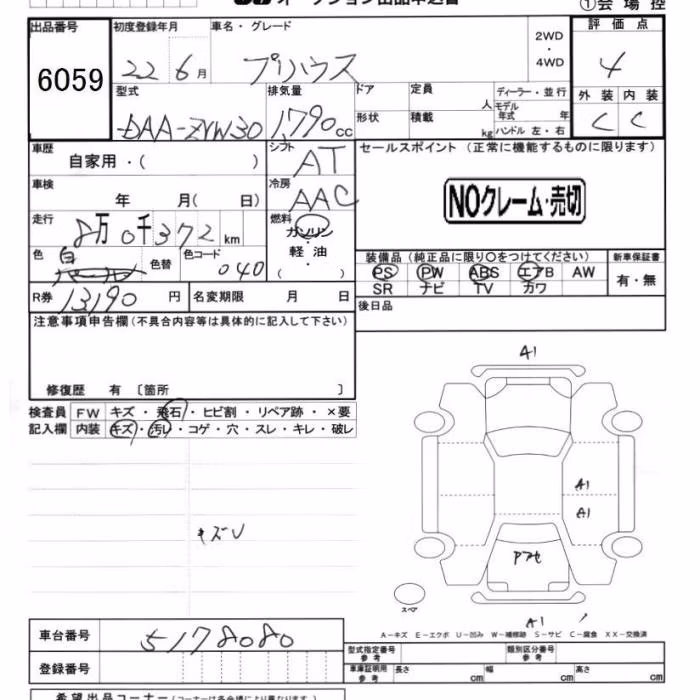 オークション出品申込書
①会場控
出品番号
6059
初度登録年月
22 6月
車名・グレード
プリウス
2WD
・
4WD
評価点
4
外装 内装
C C
型式
DAA-ZVW30
排気量
1,790cc
ドア
形状
定員 人
積載 kg
ディーラー・並行
モデル年式 年
ハンドル 左・右
車歴
自家用・( )
シフト
AT
セールスポイント (正常に機能するものに限ります)
NOクレーム・売切
車検
年 月( 日)
冷房
AAC
走行
8万0千372km
燃料
ガソリン
・
軽油
( )
色
白
色替
色コード
040
装備品 (純正品に限り○をつけてください)
PS PW ABS エアB AW
SR ナビ TV カワ
新車保証書
有・無
R券 13190円
名変期限 月 日
後日品
注意事項申告欄 (不具合内容等は具体的に記入して下さい)
修復歴 有 〔箇所 〕
検査員記入欄
FW キズ・飛石・ヒビ割・リペア跡・×要
内装 キズ・汚レ・コゲ・穴・スレ・キレ・破レ
キズU
A1
A1
A1
A1
スペア
A-キズ E-エクボ U-凹み W-補修跡 S-サビ C-腐食 XX-交換済
車台番号
5178080
登録番号
型式指定番号 参考
類別区分番号 参考
車庫証明用 参考
長さ cm 幅 cm 高さ cm
希望出品コーナー